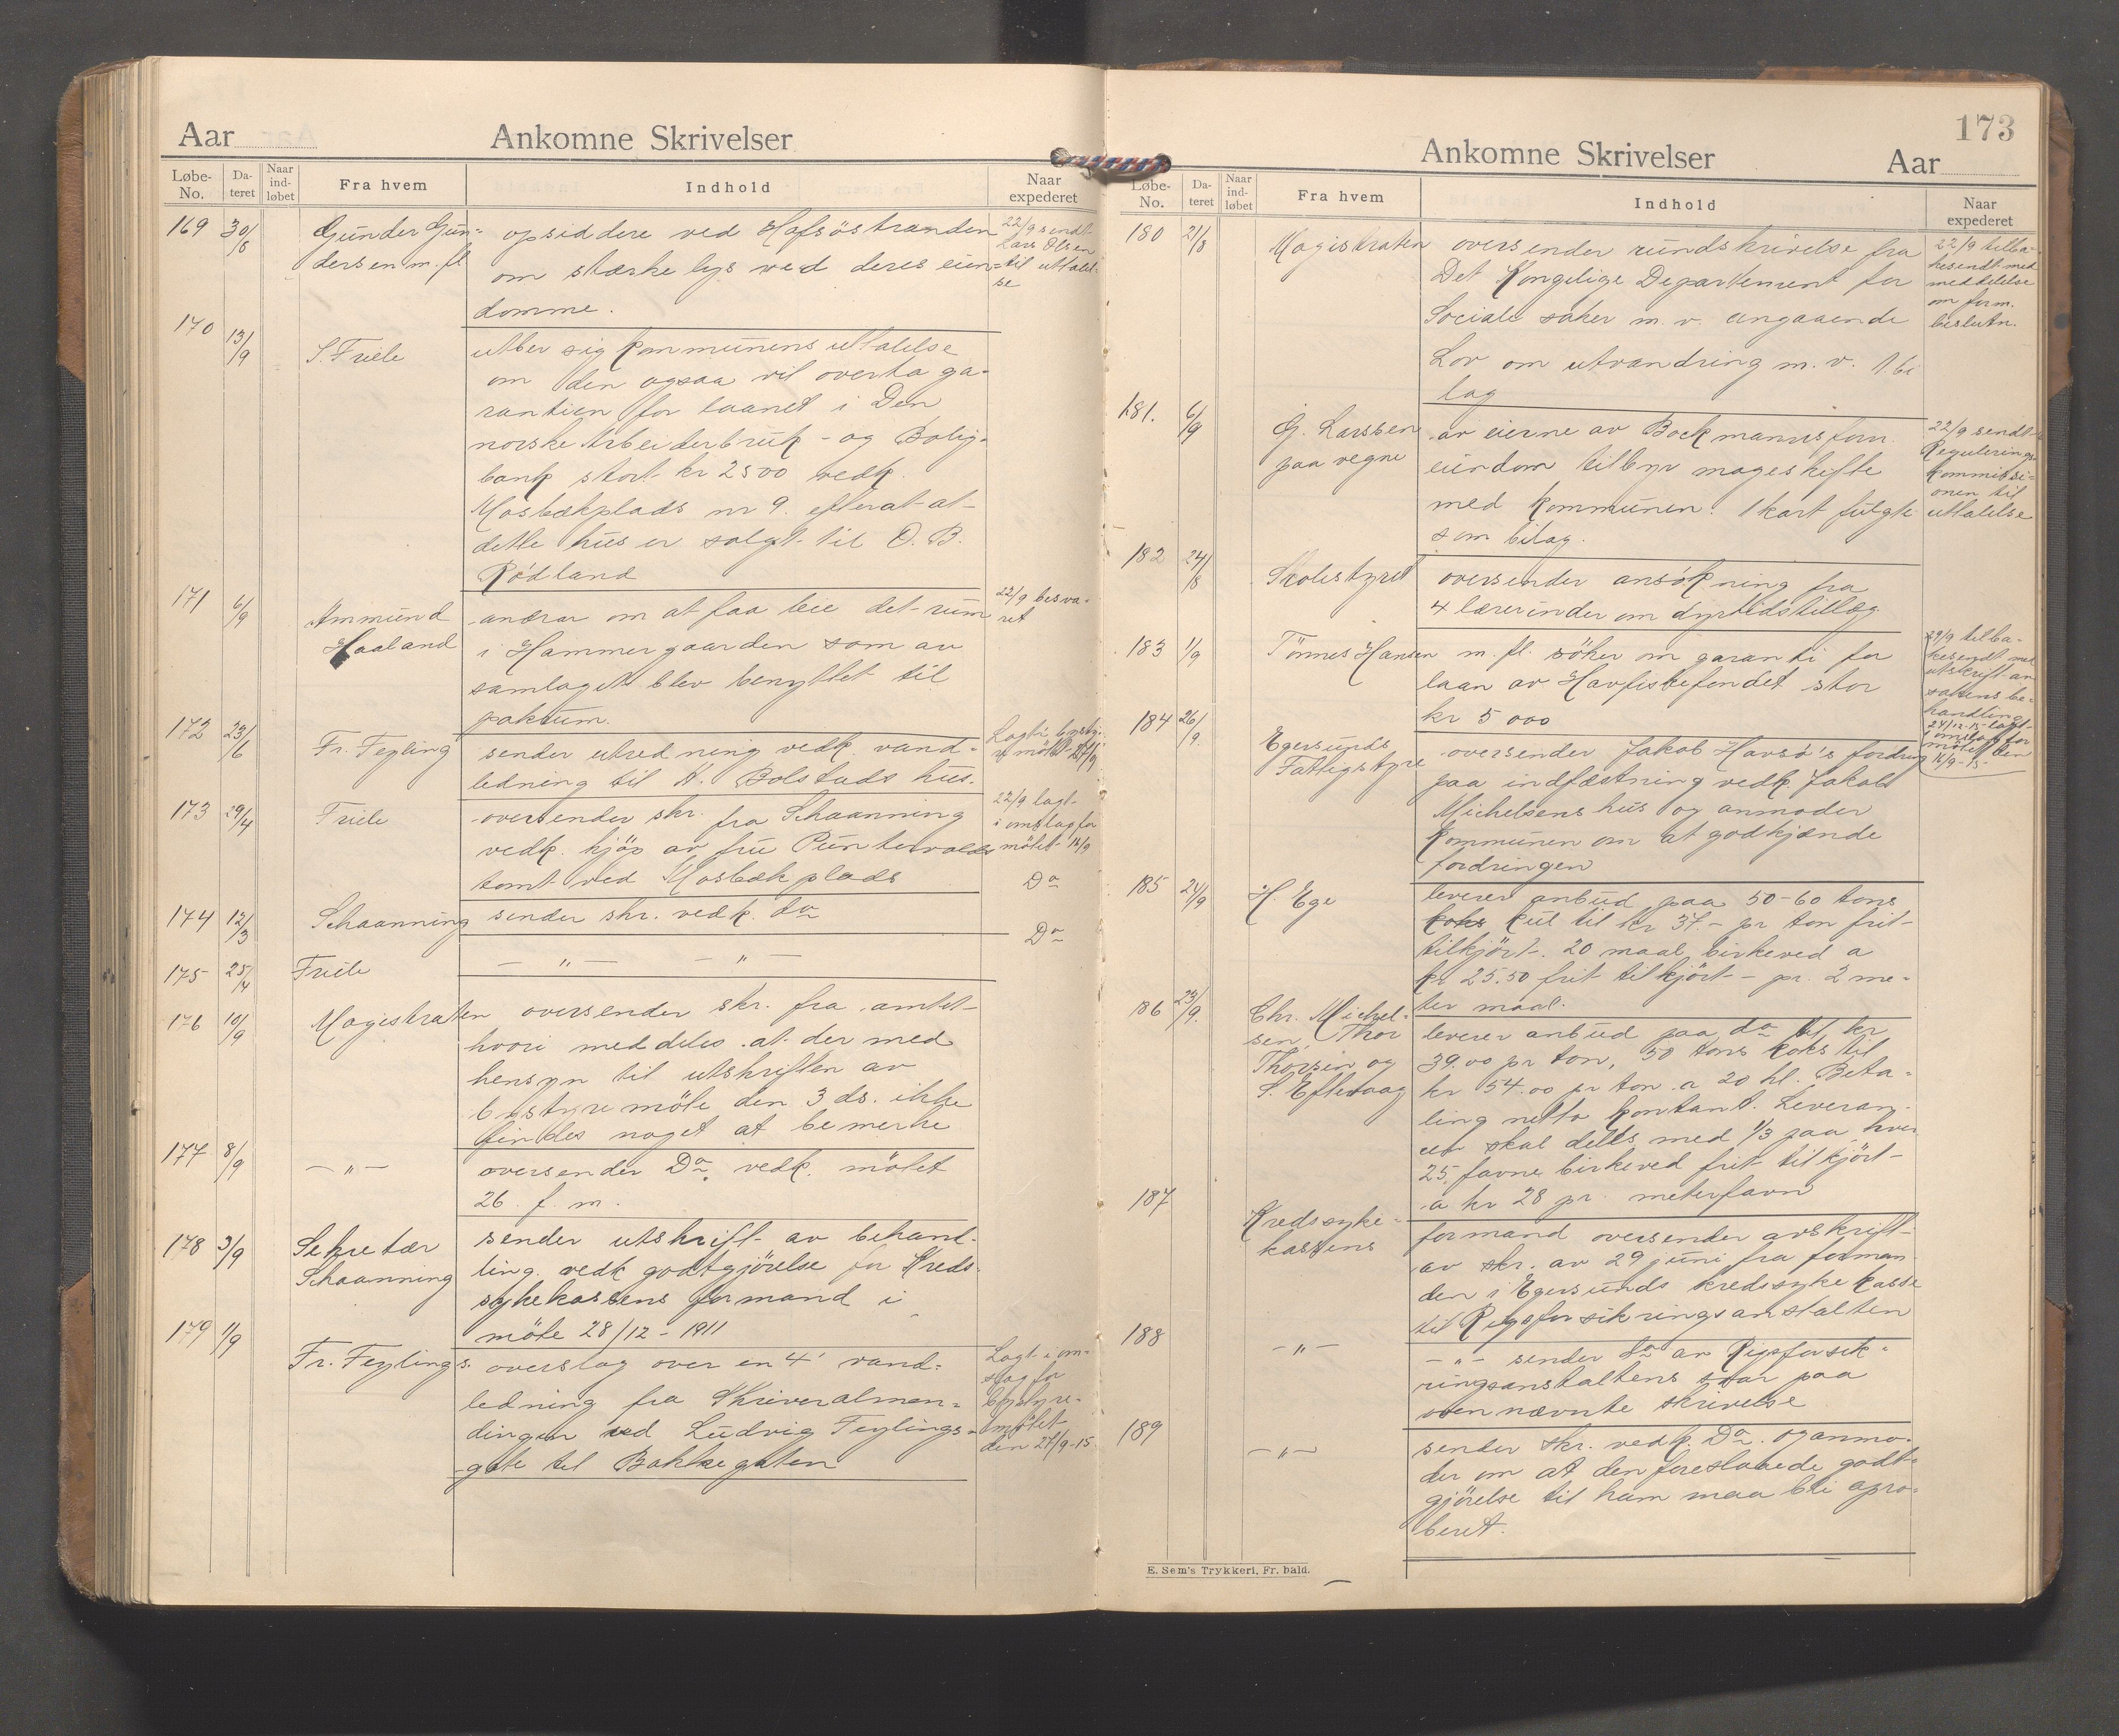 Aar
Ankomne Skrivelser
Løbe-No.
Da-teret
Naar ind-løbet
Fra hvem
Indhold
Naar expederet
169 30/8 Gunder Gun-
dersen m. fl
opsiddere ved Hafsöstranden
om stærke lys ved deres eien-
domme.
22/9 sendt
Lars Olsen
til uttalel-
se
170 13/9 S. Friele
utber sig kommunens uttalelse
om den ogsaa vil overta ga-
rantien for laanet i Den
norske Arbeiderbruk- og Bolig-
bank stort kr 2500 vedk.
Mosbækplads nr 9. efterat at
dette hus er solgt til O. B.
Rödland
171 6/9 Ammund
Haaland
andrar om at faa leie det rum
i Hammergaarden som av
samlaget blev benyttet til
pakrum.
22/9 besva-
ret
172 23/6 Fr. Feyling
sender utredning vedk. vand-
ledning til A. Bolstads hus.
Lagt i bysty-
173 29/4 Friele
oversender skr. fra Schaanning
vedk. kjöp av fru Puntervolds
tomt ved Mosbæk plads
22/9 lagt
i omslag for
mötet 16/9
Do
174 12/3 Schaanning
sender skr. vedk. do
Do
175 25/4 Friele
— „ — — „ —
176 10/9 Magistraten
oversender skr. fra amtet
hvori meddeles at der med
hensyn til utskriften av
bystyremöte den 3 ds. ikke
findes noget at bemerke
177 8/9 — „ —
oversender Do. vedk. mötet
26 f. m.
178 3/9 Sekretær
Schaanning
sender utskrift av behand-
ling. vedk godtgjörelse for Kreds-
sykekassens formand i
möte 28/12 - 1911
179 1/9 Fr. Feylings.
overslag over en 4' vand-
ledning fra Skriveralmen-
dingen ved Ludvig Feylings-
gate til Bakkegaten
Lagt i om-
slag for
bystyre-
mötet
den 27/9-15
173
Ankomne Skrivelser
Aar
Løbe-No.
Da-teret
Naar ind-løbet
Fra hvem
Indhold
Naar expederet
180 21/8 Magistraten
oversender rundskrivelse fra
Det Kongelige Departement for
Sociale saker m. v. angaaende
Lov om utvandring m. v. 1 bi
lag
22/9 tilba-
kesendt med
meddelelse
om form.
beslutn.
181. 6/9 G. Larssen
paa vegne
av eierne av Bockmannsforn
eiendom tilbyr mageskifte
med kommunen. 1 kart fulgte
som bilag.
22/9 sendt
Regulerings-
kommissi-
onen til
uttalelse
182 24/8 Skolestyret
oversender ansökning fra
4 lærerinder om dyrtidstillæg
183 1/9 Tönnes Hansen
m. fl. söker om garanti for
laan av Havfiskefondet stor
kr 5 000
29/9 tilba-
kesendt med
utskrift av
sakens be-
handling
184 26/9. Egersunds
Fattigstyre
oversender Jakob Havsö's fordring
paa indfæstning vedk. Jakob
Michelsens hus og anmoder
kommunen om at godkjænde
fordringen
24/12-15 lagt
i omslag for
mötet den
16/9-15
185 24/9 H. Ege
leverer anbud paa 50-60 tons
koks kul til kr 37- pr ton frit
tilkjört. 20 maal birkeved a
kr 25.50 frit tilkjört - pr. 2 me-
ter maal.
186 23/9. Chr. Michel-
sen, Thor
Thorsen og
S. Eftevaag
leverer anbud paa do til kr
39.00 pr ton, 50 tons koks til
kr 54.00 pr ton a 20 hl. Beta-
ling netto kontant. Leveran-
cen skal deles med 1/3 paa hver
25 favne birkeved frit tilkjört
a kr 28 pr. meterfavn
187 Kredssyke-
kassens
formand oversender avskrift
av skr. av 29 juni fra forman
den i Egersunds kredssykekasse
til Rigsforsikringsanstalten
188 — „ —
— „ — sender do av Rigsforsik-
ringsanstaltens svar paa
ovennævnte skrivelse
189 — „ —
sender skr. vedk. Do. og anmo-
der om at den foreslaaede godt-
gjörelse til ham maa bli apro-
beret.
E. Sem's Trykkeri, Fr. hald.